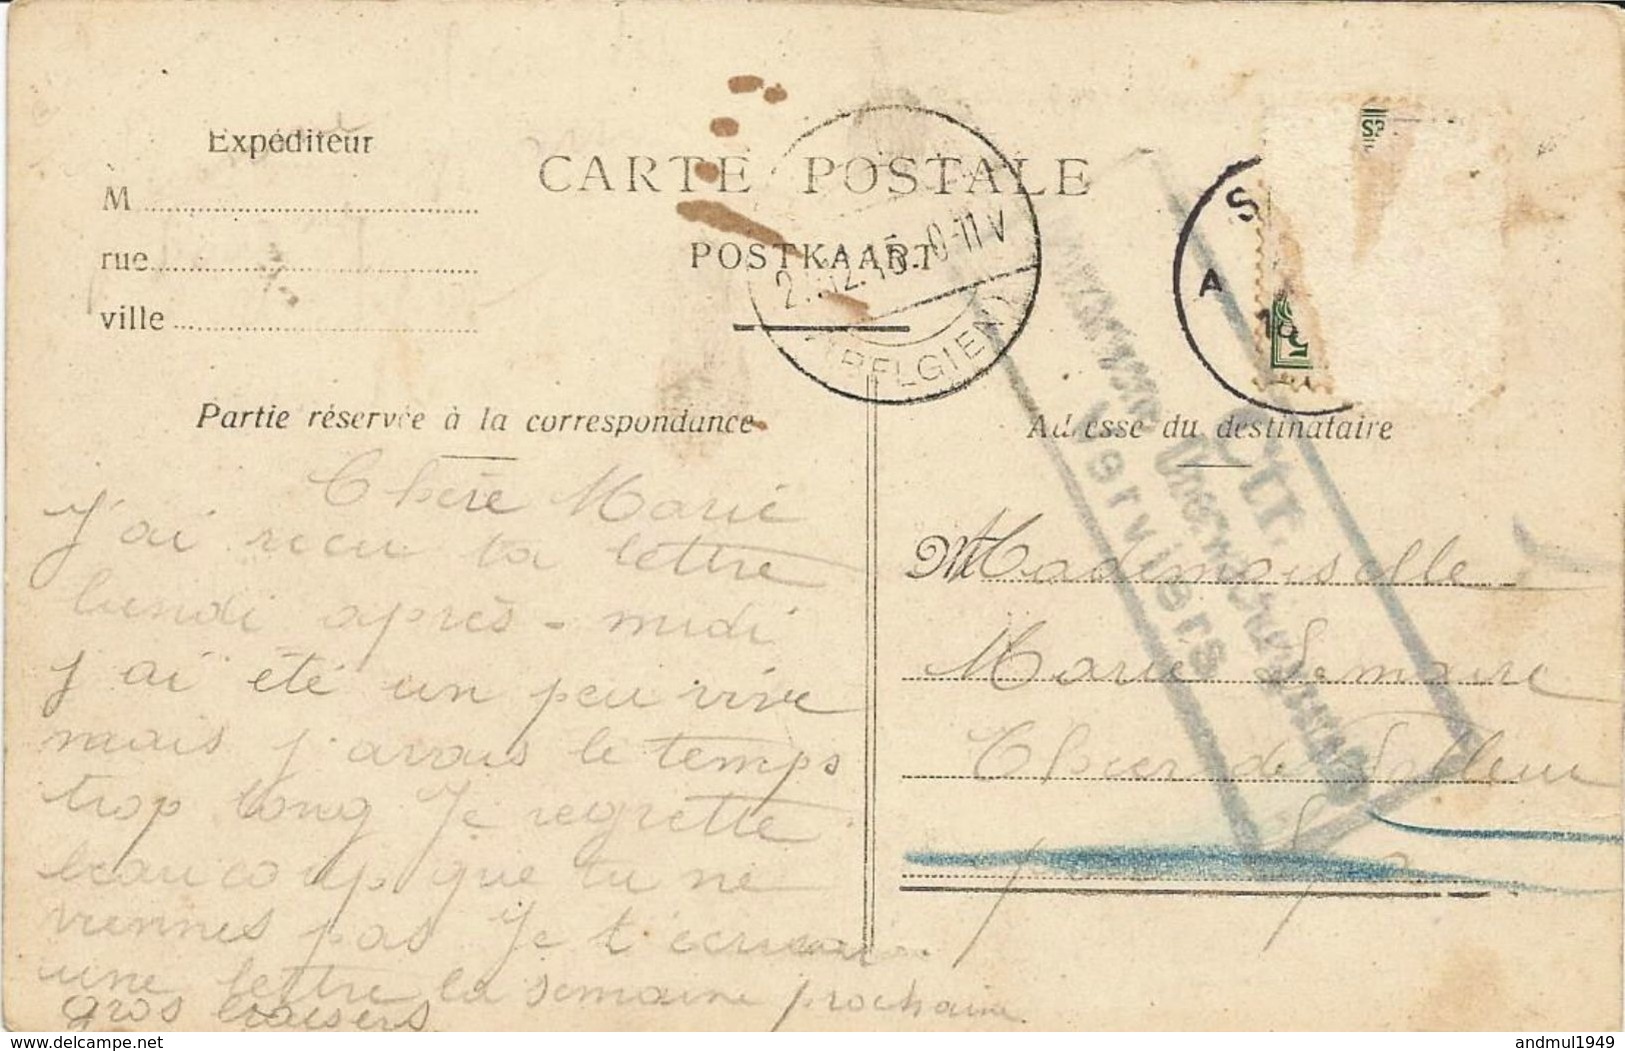 CARTE POSTALE
POSTKAART
Expéditeur
M
rue
ville
(BELGIEN)
S
A
Partie réservée à la correspondance
Adresse du destinataire
Verviers
Chère Marie
J'ai recu ta lettre
lundi après-midi
J'ai été un peu vive
mais j'avais le temps
trop long Je regrette
beaucoup que tu ne
viennes pas Je t'écrirai
une lettre la semaine prochaine
Gros baisers
Mademoiselle
Marie Lemaire
Thier de
Spa
delcampe.net
andmul1949